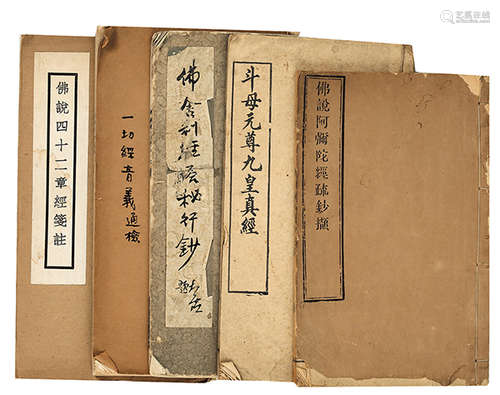 佛說四十二章經箋註
一切經音義通檢
佛舍利經
鈔
斗母元尊九皇真經
佛說阿彌陀經疏鈔擷